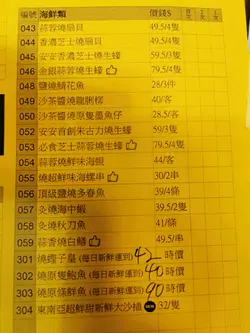 編號 海鮮類 價錢$
043 蒜蓉燒扇貝 49.5/4隻
044 香濃芝士燒扇貝 49.5/4隻
045 安安香濃芝士燒生蠔 59.5/3隻
046 金銀蒜蓉燒生蠔 79.5/4隻
048 鹽燒鯖花魚 28/3件
049 沙茶醬燒龍脷柳 40/客
050 沙茶醬燒原隻墨魚仔 28.5/隻
052 安安首創朱古力燒生蠔 59/3隻
053 必食芝士蒜蓉燒生蠔 79.5/4隻
054 蒜蓉燒鮮味海蜆 44/客
055 燒超鮮味海螺串 30/2串
056 頂級鹽燒多春魚 39/4條
057 炙燒海中蝦 39.5/2隻
058 炙燒秋刀魚 41/條
059 蒜香燒白鱔 49.5/串
301 燒蟶子皇(每日新鮮運到) 42 時價
302 燒原隻鮑魚(每日新鮮運到) 40 時價
303 燒原條鮮魚(每日新鮮運到) 90 時價
304 東南亞超鮮甜新鮮大沙插 32/隻